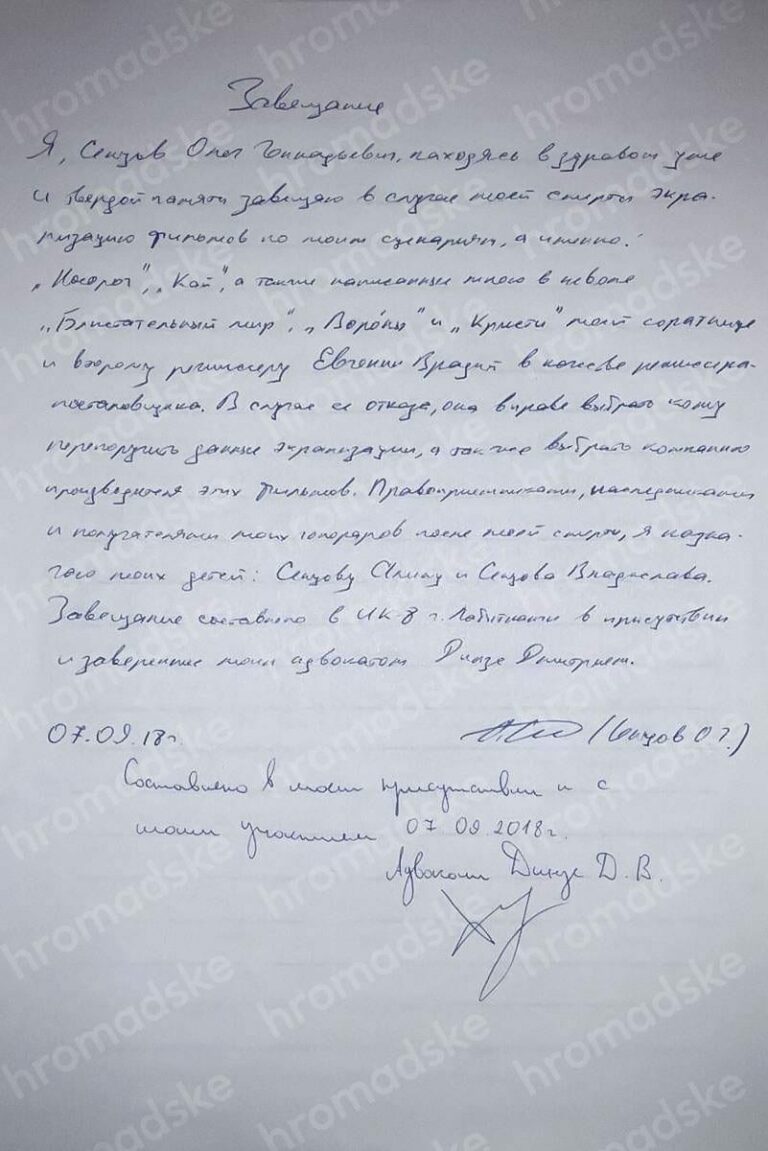 Завещание
Я, Сенцов Олег Геннадьевич, находясь в здравом уме
и твердой памяти завещаю в случае моей смерти экра-
ризацию фильмов по моим сценариям, а именно:
„Носорог", „Кай", а также написанные мною в неволе
„Блистательный мир", „Воро́ны" и „Кристи" моей соратнице
и второму режиссеру Евгении Врадий в качестве режиссера-
постановщика. В случае ее отказа, она вправе выбрать кому
перепоручить данные экранизации, а также выбрать компанию
производителя этих фильмов. Правоприемниками, наследниками
и получателями моих гонораров после моей смерти, я назна-
чаю моих детей: Сенцову Алину и Сенцова Владислава.
Завещание составлено в ИК-8 г. Лабытнанги в присутствии
и заверенные моим адвокатом Динзе Дмитрием.
07.09.18г. (Сенцов О Г)
Составлено в моем присутствии и с
моим участием 07.09.2018г.
Адвокат Динзе Д.В.
hromadske